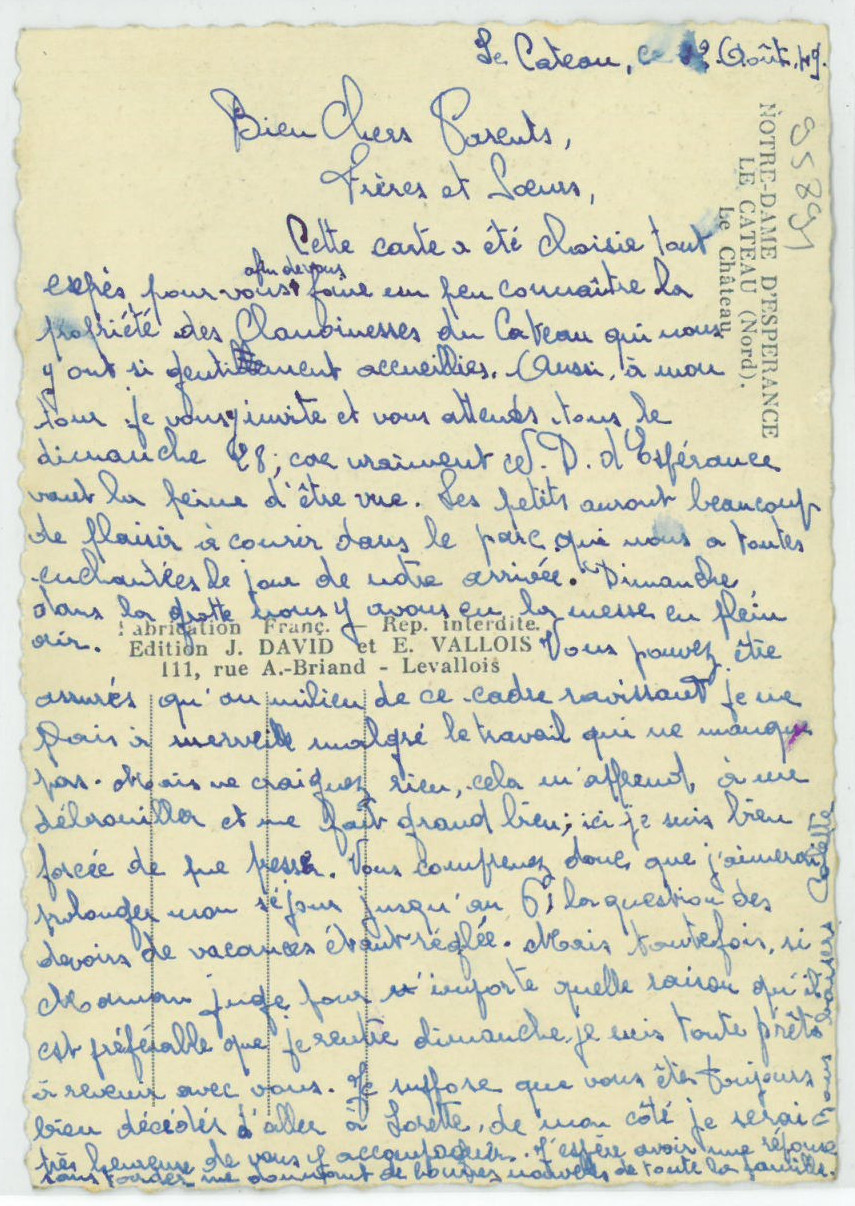 Le Cateau, ce Août 49.
Bien Chers Parents,
Frères et Soeurs,
Cette carte a été choisie tout
exprès pour vous afin de vous faire un peu connaître la
propriété des Chanoinesses du Cateau qui nous
y ont si gentiment accueillies. Aussi, à mon
tour je vous y invite et vous attends tous le
dimanche 28; car vraiment N. D. d'Espérance
vaut la peine d'être vue. Les petits auront beaucoup
de plaisir à courir dans le parc qui nous a toutes
enchantées le jour de notre arrivée. Dimanche
dans la grotte nous y avons eu la messe en plein
air. Vous pouvez être
assurés qu'au milieu de ce cadre ravissant je me
plais à merveille malgré le travail qui ne manque
pas. Mais ne craignez rien, cela m'apprend à me
débrouiller et me fait grand bien; ici je suis bien
forcée de me presser. Vous comprenez donc que j'aimerai
prolonger mon séjour jusqu'au 6; la question des
devoirs de vacances étant réglée. Mais toutefois, si
Maman juge pour n'importe quelle raison qu'il
est préférable que je rentre dimanche, je suis toute prête
à revenir avec vous. Je suppose que vous êtes toujours
bien décidés d'aller à Lorette, de mon côté je serai
très heureuse de vous y accompagner. J'espère avoir une réponse
sans tarder me donnant de bonnes nouvelles de toute la famille.
baisers Colette
NOTRE-DAME D'ESPERANCE
LE CATEAU (Nord).
Le Château
95891
Fabrication Franç. — Rep. interdite.
Edition J. DAVID et E. VALLOIS
111, rue A.-Briand - Levallois